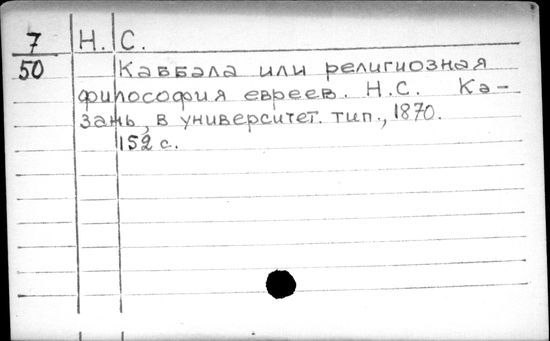 7 Н. С.
50 Каббала или религиозная
философия евреев. Н.С. Ка-
зань, в университет. тип., 1870.
152 с.